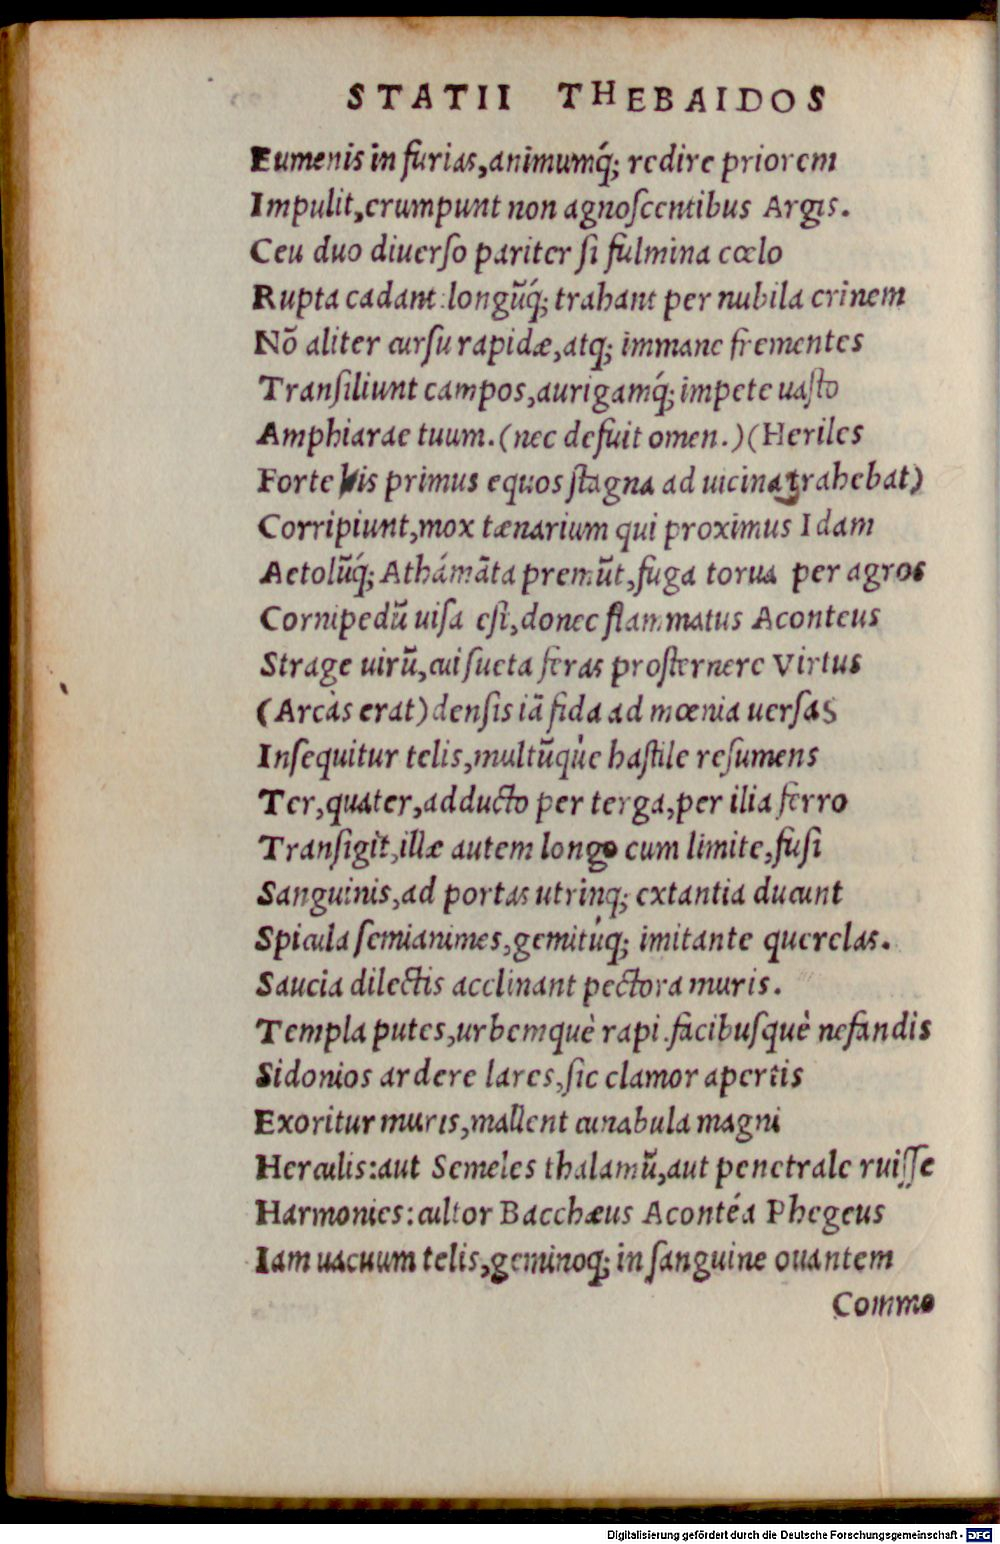 STATII THEBAIDOS
Eumenis in furias,animumq́; redire priorem
Impulit,erumpunt non agnoſcentibus Argis.
Ceu duo diuerſo pariter ſi fulmina cœlo
Rupta cadant:longũq́; trahant per nubila crinem
Nõ aliter curſu rapidæ,atq; immane frementes
Tranſiliunt campos,aurigamq́; impete uaſto
Amphiarae tuum.(nec defuit omen.)(Heriles
Forte his primus equos ſtagna ad uicina trahebat)
Corripiunt,mox tænarium qui proximus Idam
Aetolũq́; Athámãta premũt,fuga torua per agros
Cornipedũ uiſa eſt,donec flammatus Aconteus
Strage uirũ,cui ſueta feras proſternere Virtus
(Arcàs erat)denſis iã fida ad mœnia uerſas
Inſequitur telis,multũquè haſtile reſumens
Ter,quater,adducto per terga,per ilia ferro
Tranſigit,illæ autem longo cum limite,fuſi
Sanguinis,ad portas utrinq; extantia ducunt
Spicula ſemianimes,gemitúq; imitante querelas.
Saucia dilectis acclinant pectora muris.
Templa putes,urbemquè rapi.facibuſquè nefandis
Sidonios ardere lares,ſic clamor apertis
Exoritur muris,mallent cunabula magni
Herculis:aut Semeles thalamũ,aut penetrale ruiſſe
Harmonies:cultor Bacchæus Acontéa Phegeus
Iam uacuum telis,geminoq; in ſanguine ouantem
Commo
Digitalisierung gefördert durch die Deutsche Forschungsgemeinschaft - DFG